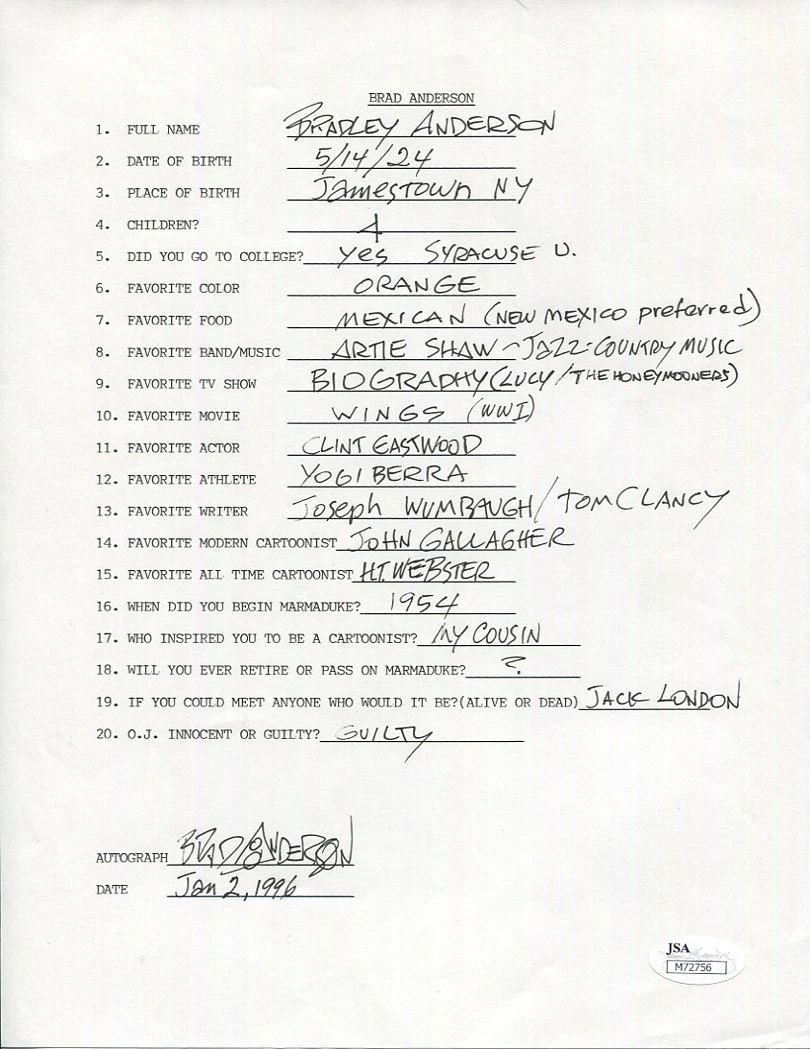 BRAD ANDERSON
1. FULL NAME BRADLEY ANDERSON
2. DATE OF BIRTH 5/14/24
3. PLACE OF BIRTH Jamestown NY
4. CHILDREN? 4
5. DID YOU GO TO COLLEGE? yes SYRACUSE U.
6. FAVORITE COLOR ORANGE
7. FAVORITE FOOD MEXICAN (NEW MEXICO preferred)
8. FAVORITE BAND/MUSIC ARTIE SHAW - JAZZ - COUNTRY MUSIC
9. FAVORITE TV SHOW BIOGRAPHY (LUCY / THE HONEYMOONERS)
10. FAVORITE MOVIE WINGS (WWI)
11. FAVORITE ACTOR CLINT EASTWOOD
12. FAVORITE ATHLETE YOGI BERRA
13. FAVORITE WRITER Joseph WUMBAUGH / TOM CLANCY
14. FAVORITE MODERN CARTOONIST JOHN GALLAGHER
15. FAVORITE ALL TIME CARTOONIST H.T. WEBSTER
16. WHEN DID YOU BEGIN MARMADUKE? 1954
17. WHO INSPIRED YOU TO BE A CARTOONIST? MY COUSIN
18. WILL YOU EVER RETIRE OR PASS ON MARMADUKE? ?
19. IF YOU COULD MEET ANYONE WHO WOULD IT BE?(ALIVE OR DEAD) JACK LONDON
20. O.J. INNOCENT OR GUILTY? GUILTY
AUTOGRAPH BRAD ANDERSON
DATE Jan 2, 1996
JSA
M72756